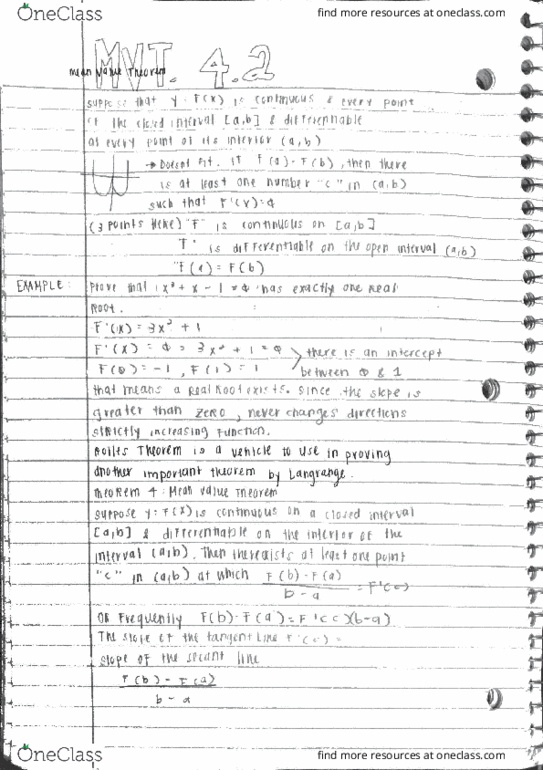 OneClass
find more resources at oneclass.com
MVT. 4.2
mean value Theorem
suppose that y = F(x) is continuous & every point
of the closed interval [a,b] & differentiable
at every point of its interior (a,b)
→ Doesn't fit. If F(a) = F(b), then there
is at least one number "c" in (a,b)
such that F'(x)=φ
(3 points Here) "F" is continuous on [a,b]
"F" is differentiable on the open interval (a,b)
"F(a) = F(b)
EXAMPLE: Prove that x³ + x - 1 = φ has exactly one Real
Root.
F'(x) = 3x² + 1
F'(x) = φ = 3x² + 1 = φ
F(φ) = -1, F(1) = 1
there is an intercept
between φ & 1
that means a Real Root exists. Since the slope is
greater than zero, never changes directions
strictly increasing function.
Rolles Theorem is a vehicle to use in proving
another important theorem by Langrange.
Theorem 4: Mean value Theorem
suppose y = F(x) is continuous on a closed interval
[a,b] & differentiable on the interior of the
interval (a,b). Then there exists at least one point
"c" in (a,b) at which F(b) - F(a)
b - a
= F'(c)
OR Frequently F(b) - F(a) = F'(c)(b-a)
The slope of the tangent line F'(c) =
slope of the secant line
F(b) - F(a)
b - a
OneClass
find more resources at oneclass.com